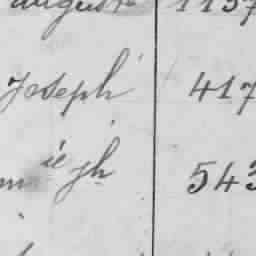 auguste 1137
Joseph 417
ie jh 543